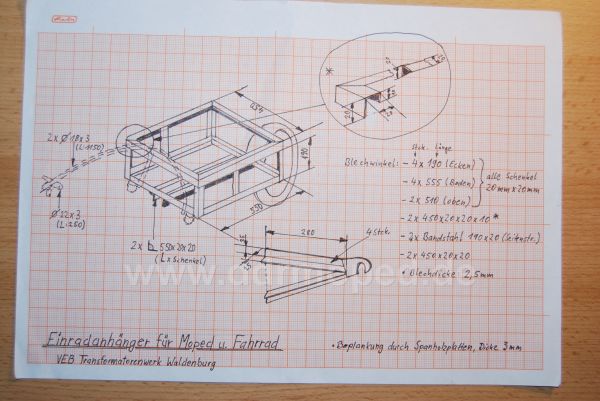 *
454
20
2 x Ø 18 x 3
(L=1150)
190
Ø 22 x 3
(L=250)
550
2 x 550x20x20
(L x Schenkel)
280
4 Stck.
35
Stck. Länge
Blechwinkel: - 4 x 190 (Ecken)
- 4 x 555 (Boden)
- 2 x 510 (oben)
alle Schenkel
20mm x 20mm
- 2 x 450x20x20x10*
- 2x Bandstahl 190x20 (Seitenstr.)
- 2 x 450x20x20
• Blechdicke 2,5mm
Einradanhänger für Moped u. Fahrrad
VEB Transformatorenwerk Waldenburg
• Beplankung durch Spanholzplatten, Dicke 3mm